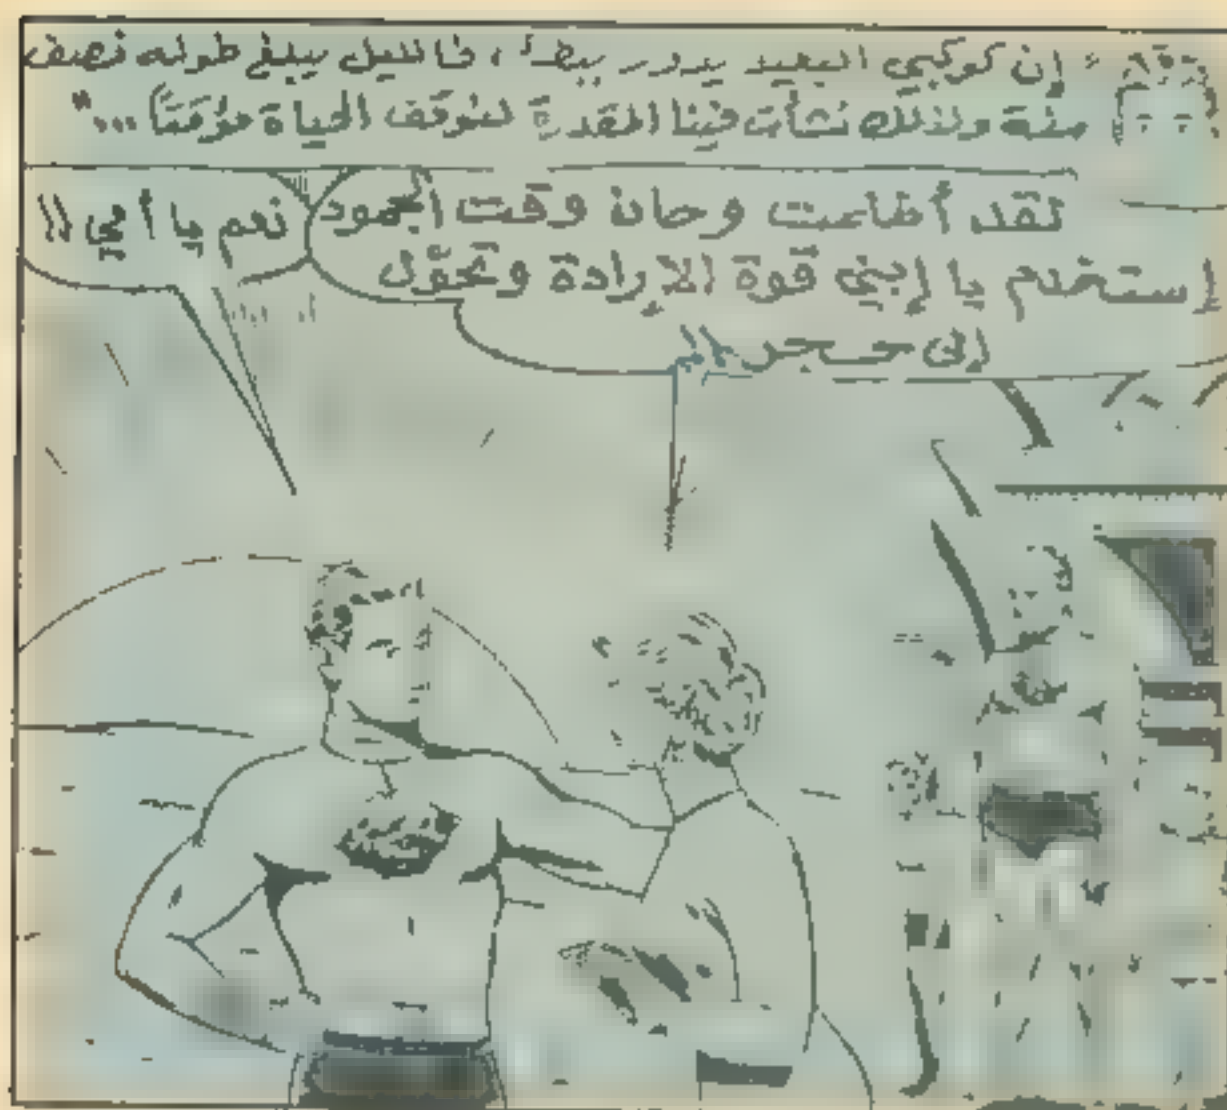 " إن كوكبي البعيد يدور ببطء ، فالليل يبلغ طوله نصف
سنة ولذلك نشأت فينا المقدرة لنوقف الحياة مؤقتاً ... "
لقد أظلمت وحان وقت الجمود
إستخدم يا إبني قوة الإرادة وتحوّل
إلى حجر !!
نعم يا أبي !!